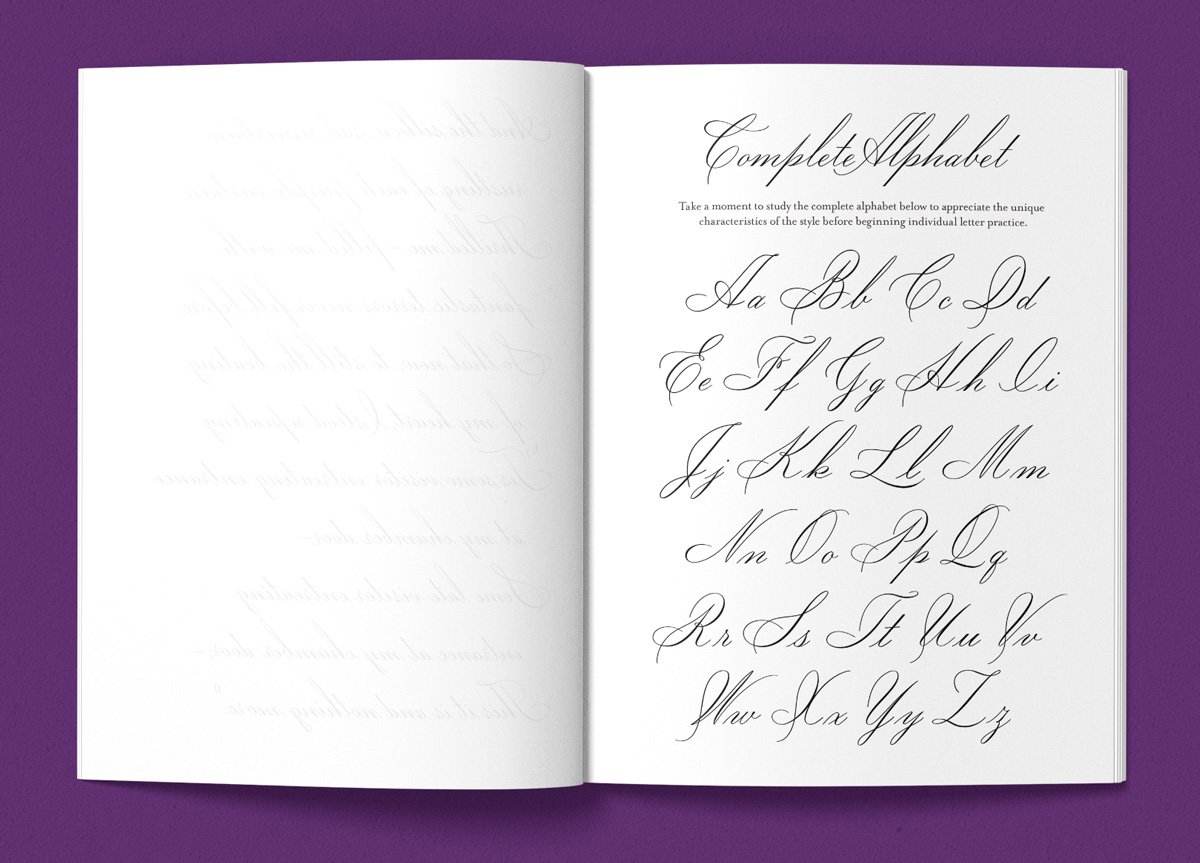 And the silken, sad, uncertain
rustling of each purple curtain
Thrilled me—filled me with
fantastic terrors never felt before;
So that now, to still the beating
of my heart, I stood repeating
"'Tis some visitor entreating entrance
at my chamber door—
Some late visitor entreating
entrance at my chamber door;—
This it is and nothing more."
Complete Alphabet
Take a moment to study the complete alphabet below to appreciate the unique
characteristics of the style before beginning individual letter practice.
Aa Bb Cc Dd
Ee Ff Gg Hh Ii
Jj Kk Ll Mm
Nn Oo Pp Qq
Rr Ss Tt Uu Vv
Ww Xx Yy Zz